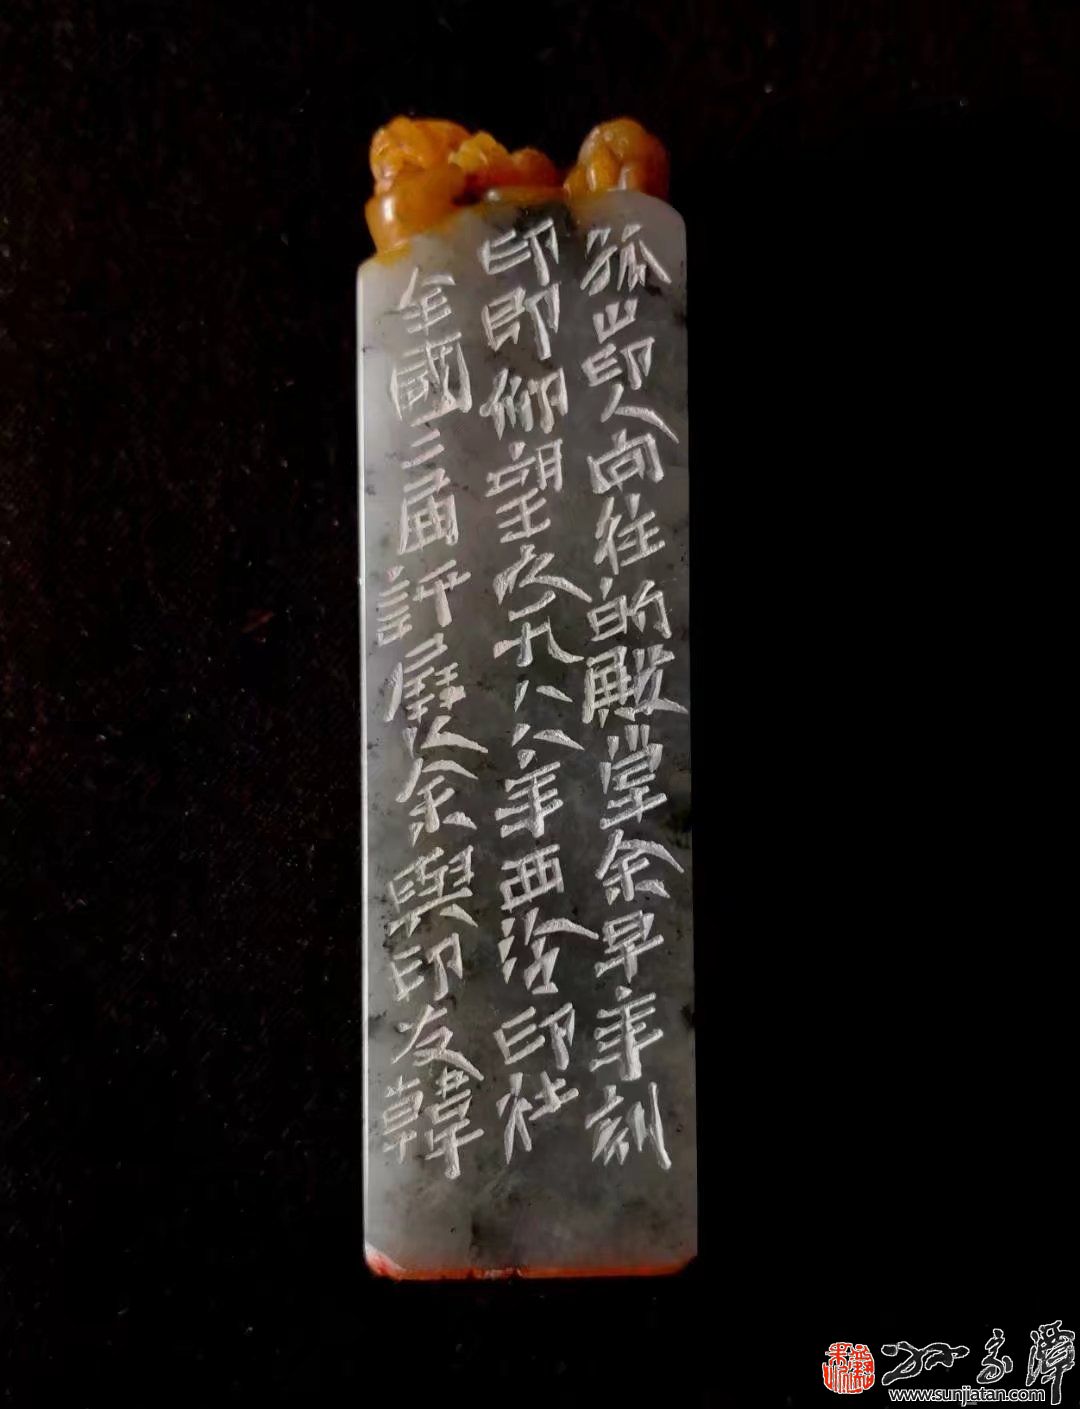 孤山印人向往的殿堂余早年刻
印即仰望之一九八八年西泠印社
全國二届評展余與印友韓
孙家潭
www.sunjiatan.com